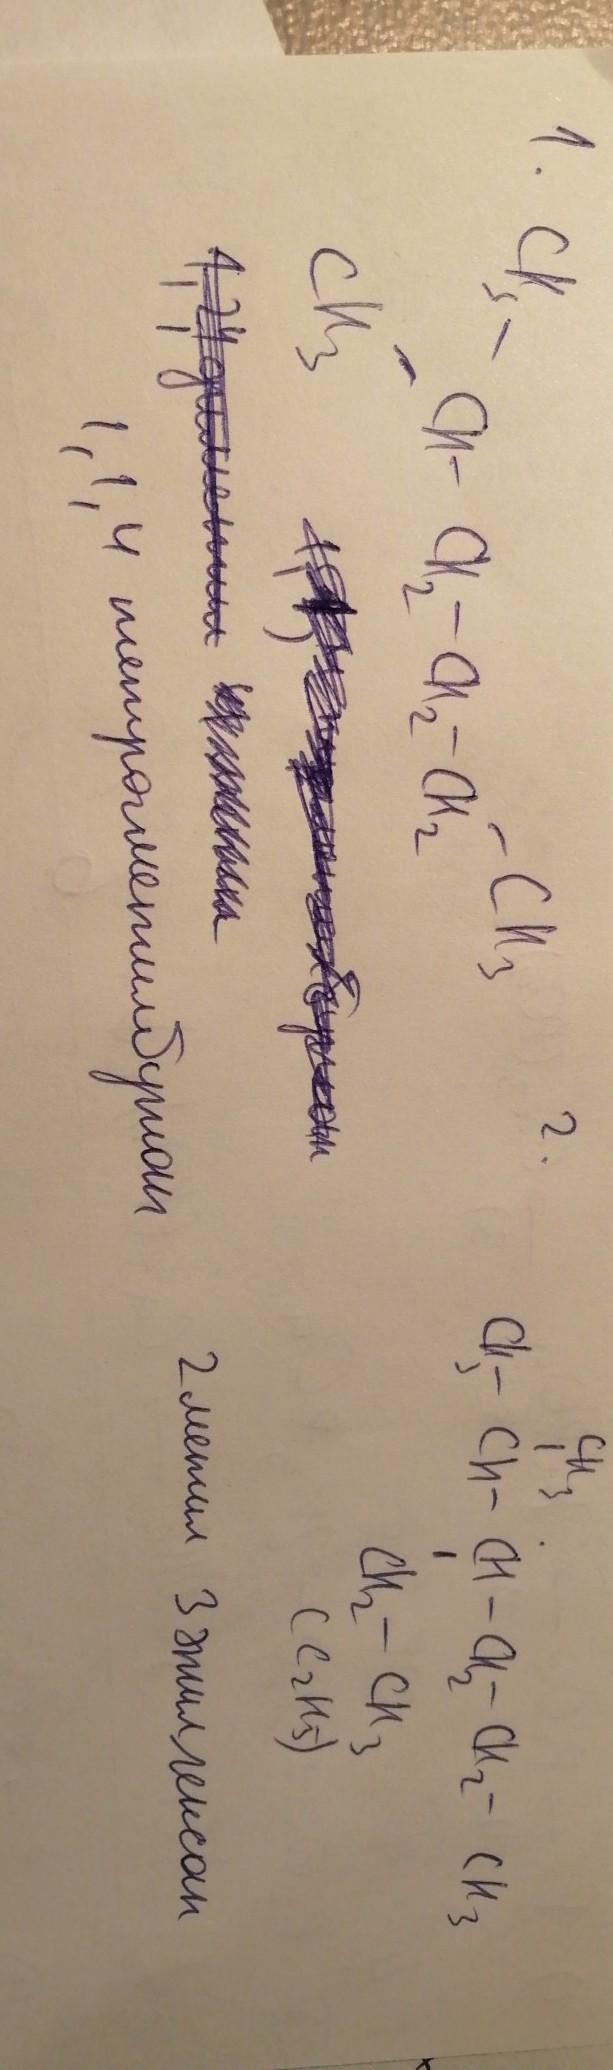 1. CH3 - CH - CH2 - CH2 - CH2 - CH3
CH3
1, 1, 4 тетраметилбутан
2.
CH3
CH3 - CH - CH - CH2 - CH2 - CH3
CH2 - CH3
(C2H5)
2 метил 3 этил, гексан